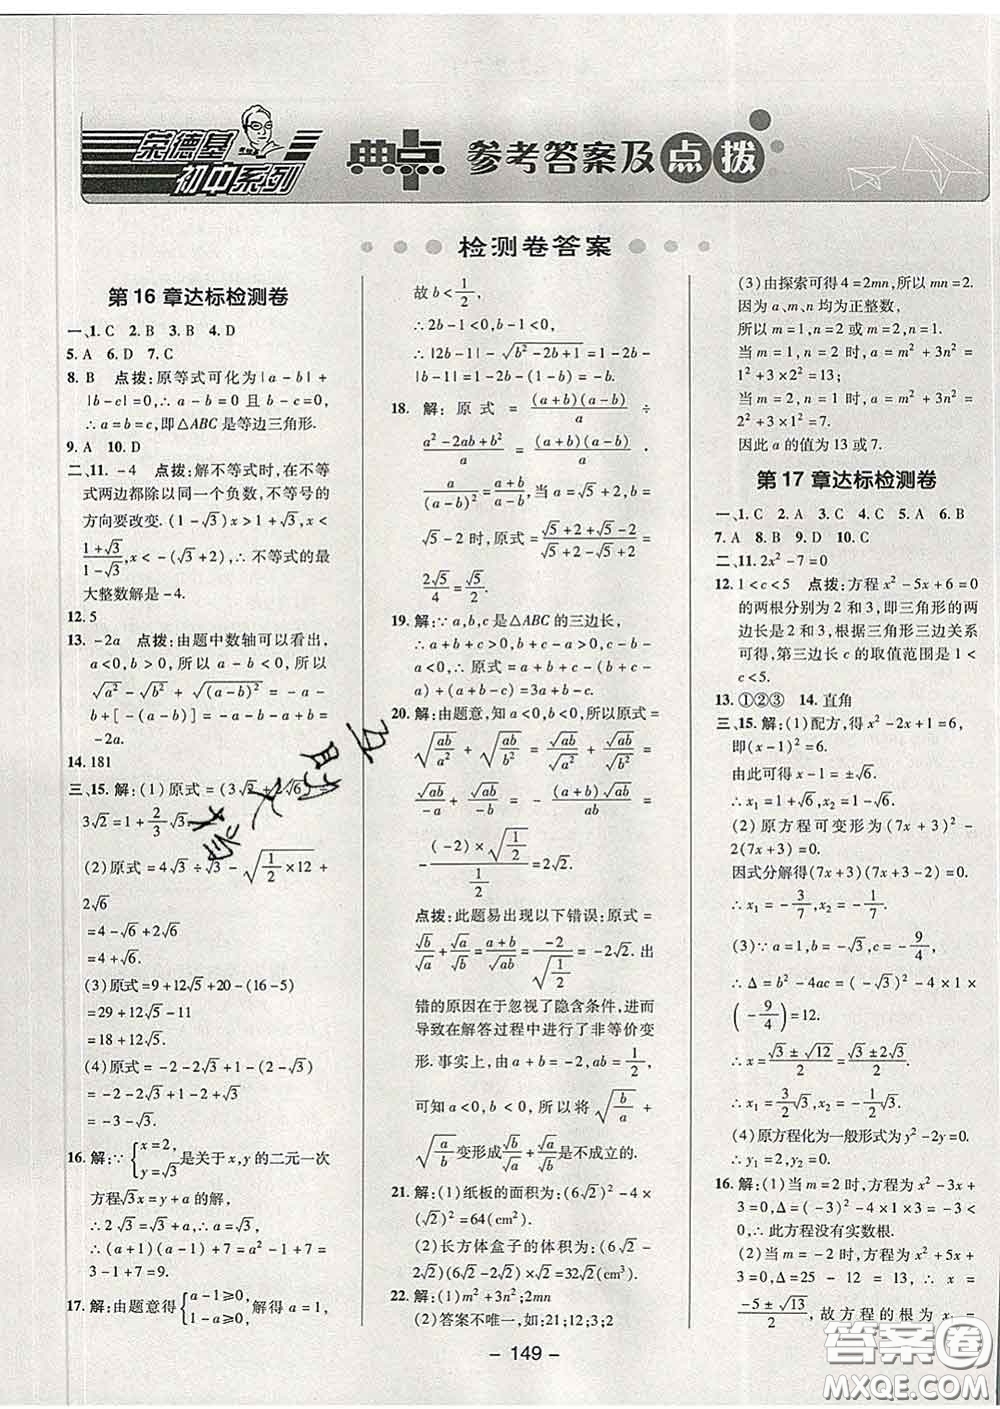 荣德基
初中系列
典点 参考答案及点拨
检测卷答案
第 16 章达标检测卷
一、1. C 2. B 3. B 4. D
5. A 6. D 7. C
8. B 点拨:原等式可化为|a-b|+
|b-c|=0,∴a-b=0 且 b-c=0,
∴a=b=c,即△ABC是等边三角形.
9. A 10. D
二、11. -4 点拨:解不等式时,在不等
式两边都除以同一个负数,不等号的
方向要改变.(1-√3)x>1+√3,x<
(1+√3)/(1-√3),x<-(√3+2),∴不等式的最
大整数解是-4.
12. 5
13. -2a 点拨:由题中数轴可以看出,
a<0,b>0,所以 a-b<0,所以
√a²-√b²+√(a-b)²=-a-
b+[-(a-b)]=-a-b-a+b=
-2a.
14. 181
三、15. 解:(1)原式=(3√2+2√6)÷
3√2=1+2/3√3.
(2)原式=4√3÷√3-√(1/2×12)+
2√6
=4-√6+2√6
=4+√6.
(3)原式=9+12√5+20-(13-2)
=29+12√5-11
=18+12√5.
(4)原式=-2-2√3+1-(2-√3)
=-2-2√3+1-2+√3
=-3-√3.
16. 解:∵{x=2, y=√3 是关于 x,y 的二元一次
方程√3x=y+a的解,
∴2√3=√3+a,∴a=√3,
∴(a+1)(a-1)+7=a²-1+7=
3-1+7=9.
17. 解:由题意得{a-1≥0, 1-a≥0, 解得 a=1,
故 b<1/2,
∴2b-1<0,b-1<0,
∴|2b-1|-√(b²-2b+1)=1-2b-
|b-1|=1-2b-(1-b)=-b.
18. 解:原式=(a+b)(a-b)/a÷
(a²-2ab+b²)/a=(a+b)(a-b)/a·
a/(a-b)²=(a+b)/(a-b),当 a=√5+2,b=
√5-2时,原式=(√5+2+√5-2)/(√5+2-√5+2)=
2√5/4=√5/2.
19. 解:∵a,b,c是△ABC的三边长,
∴a+b+c>0,b+c-a>0,c+a-
b>0,∴原式=a+b+c-(b+c-
a)+(c+a-b)=3a+c-b.
20. 解:由题意,知a<0,b<0,所以原式=
√(ab/a²)+√(ab/b²)=√(ab)/√(a²)+√(ab)/√(b²)=
√(ab)/-a+√(ab)/-b=-(a+b)√(ab)/ab=
-(-2)×√(1/2)/(1/2)=2√2.
点拨:此题易出现以下错误:原式=
√b/√a+√a/√b=(a+b)/√(ab)=-2/√(1/2)=-2√2. 出
错的原因在于忽视了隐含条件,进而
导致在解答过程中进行了非等价变
形.事实上,由a+b=-2,ab=1/2,
可知a<0,b<0,所以将√(b/a)+
√(a/b)变形成√b/√a+√a/√b不成立.
21. 解:(1)纸板的面积为:(6√2)²-4×
(√2)²=64(cm²).
(2)长方体盒子的体积为:(6√2-
2√2)(6√2-2√2)×√2=32√2(cm³).
22. 解:(1)m²+3n²;2mn
(2)答案不唯一,如:21;12;3;2
(3)由探索可得 4=2mn,mn=2.
因为 a、m、n 均为正整数,
所以 m=1,n=2或 m=2,n=1.
当 m=1,n=2 时,a=m²+3n²=
1²+3×2²=13;
当 m=2,n=1 时,a=m²+3n²=
2²+3×1²=7.
因此 a 的值为 13 或 7.
第 17 章达标检测卷
一、1. C 2. A 3. C 4. C 5. A 6. B
7. A 8. B 9. D 10. D
二、11. 2x²-7=0
12. 1<c<5 点拨:方程 x²-5x+6=0
的两根分别为 2 和 3,即三角形的两
边长是 2 和 3,根据三角形三边关系
可得,第三边长 c 的取值范围是 1<
c<5.
13. ①②③ 14. 直角
三、15. 解:(1)配方,得 x²-2x+1=6,
即(x-1)²=6.
由此可得 x-1=±√6.
∴x₁=1+√6,x₂=1-√6.
(2)原方程可变形为(7x+3)²-
2(7x+3)=0.
因式分解得(7x+3)(7x+3-2)=0.
∴x₁=-3/7,x₂=-1/7.
(3)∵a=1,b=-√3,c=-9/4,
∴Δ=b²-4ac=(-√3)²-4×1×
(-9/4)=12.
∴x=(√3±√12)/2=(√3±2√3)/2.
∴x₁=3/2√3,x₂=-√3/2.
(4)原方程化为一般形式为y²-2y=0.
∴y₁=2,y₂=0.
16. 解:(1)当 m=2 时,方程为 x²-3x+
3=0,Δ=(-3)²-4×1×3=-3<
0,∴此方程没有实数根.
(2)当 m=-2 时,方程为 x²+5x+
3=0,Δ=25-12=13,∴x=
(-5±√13)/2,故方程的根为 x₁=
- 149 -
答案圈
MXQE.COM